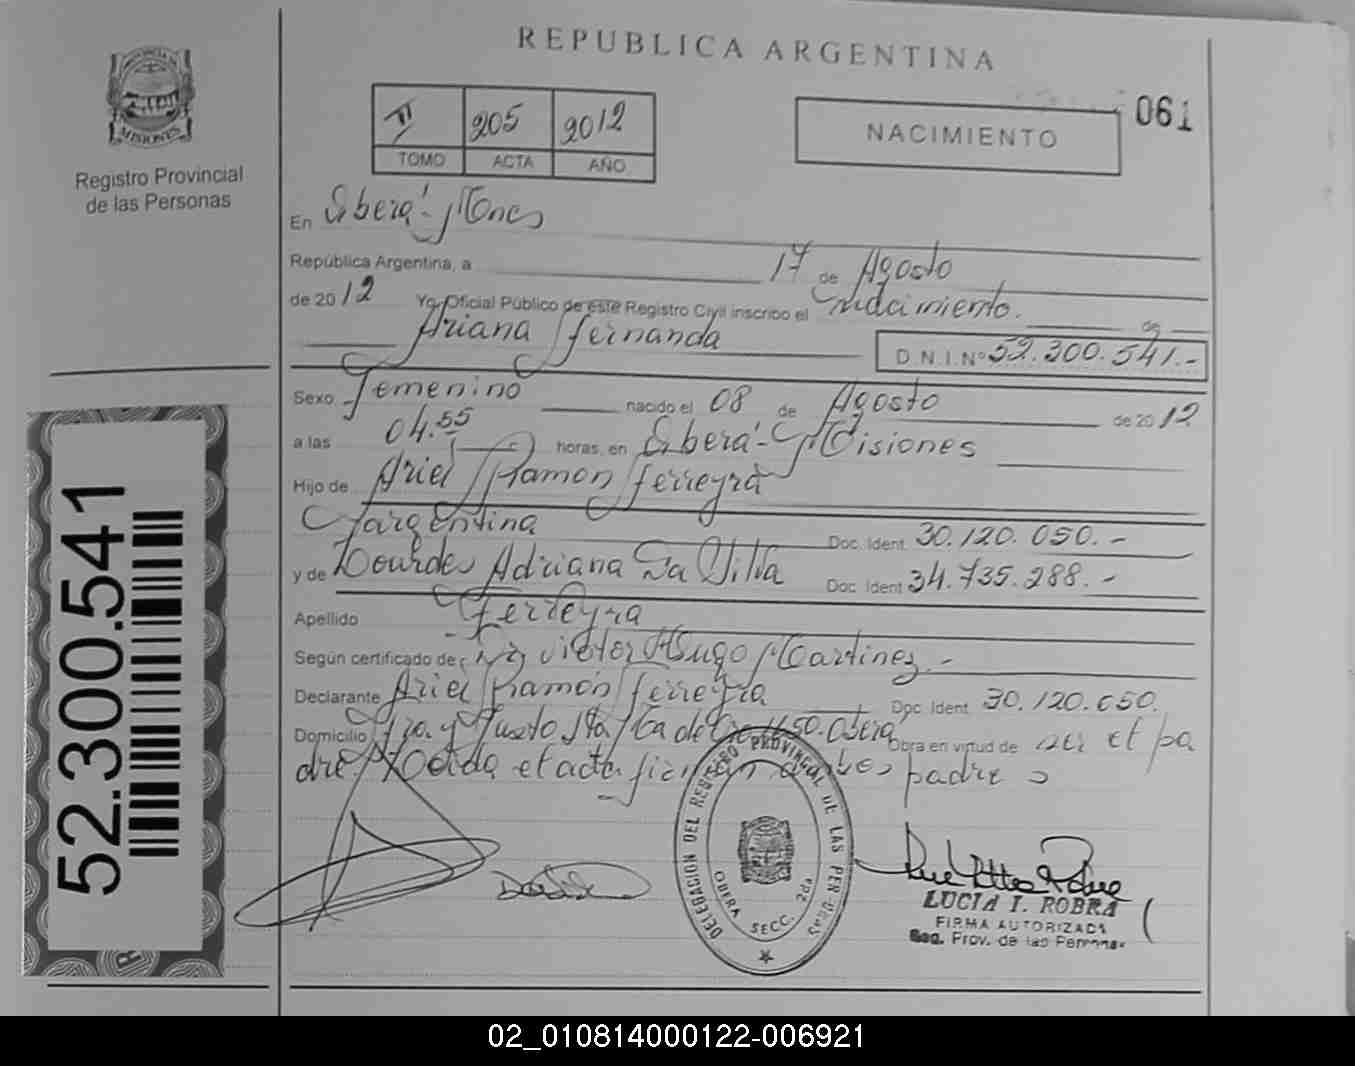 REPUBLICA ARGENTINA
PROVINCIA
MISIONES
Registro Provincial
de las Personas
II 205 2012
TOMO ACTA AÑO
NACIMIENTO
061
En Oberá - Mnes
República Argentina, a 17 de Agosto
de 2012 Yo, Oficial Público de este Registro Civil inscribo el nacimiento. de
Ariana Fernanda D.N.I.Nº 52.300.541.-
Sexo Femenino nacido el 08 de Agosto de 2012
a las 04.55 horas, en Oberá - Misiones
Hijo de Ariel Ramon Ferreyra
argentina Doc. Ident. 30.120.050.-
y de Lourdes Adriana Da Silva Doc. Ident 34.735.288.-
Apellido Ferreyra
Según certificado de: Victor Hugo Martinez.-
Declarante Ariel Ramon Ferreyra Doc. Ident. 30.120.050.
Domicilio y Obra en virtud de ser el pa
dre Leida el acta firman ambos padres
DELEGACION DEL REGISTRO PROVINCIAL DE LAS PERSONAS
OBERA SECC. 2da
LUCIA I. ROBRA
FIRMA AUTORIZADA
Reg. Prov. de las Personas
52.300.541
02_010814000122-006921